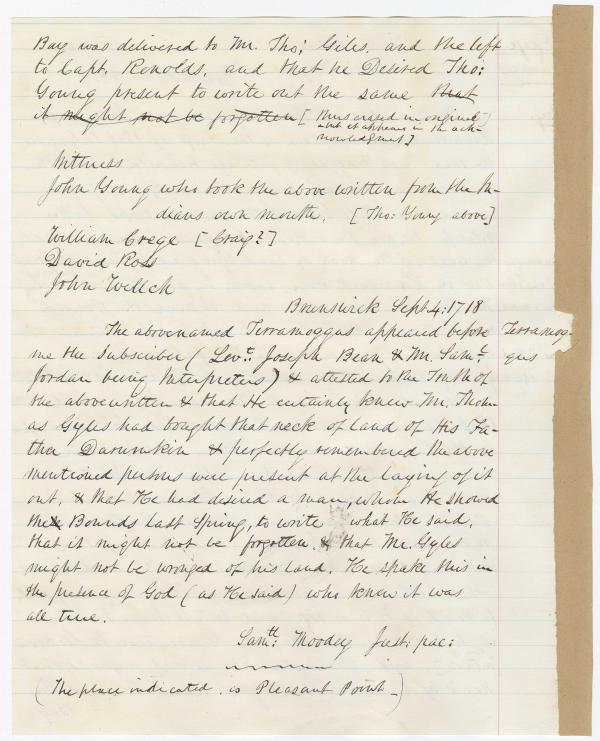 Bay was delivered to Mr. Tho: Giles, and the left
to Capt. Renolds, and that he Desired Tho:
Young present to write out the same that
it might not be forgotten [ thus erased in original
- but it appears in the ack-
nowledgment ]
Wittness
John Young who took the above written from the In-
dians own mouth. [ Tho: Young above ]
William Crege [ Craig? ]
David Ross
John Wellch
Brunswick Sept 4: 1718
The abovenamed Terramoggus appeared before
me the Subscriber ( Levt: Joseph Bean & Mr. Saml
Jordan being Interpreters ) & attested to the Truth of
the abovewritten & that He certainly knew Mr. Thom-
as Gyles had bought that neck of land of His Fa-
ther Darumkin & perfectly remembered the above
mentioned persons were present at the laying of it
out, & that He had desired a man, whom He showed
the Bounds last Spring, to write what He said,
that it might not be forgotten, & that Mr. Gyles
might not be wronged of his land. He spake this in
the presence of God ( as He said ) who knew it was
all true.
Samll: Moodey Just: pac:
( The place indicated, is Pleasant Point - )
Terramog-
gus